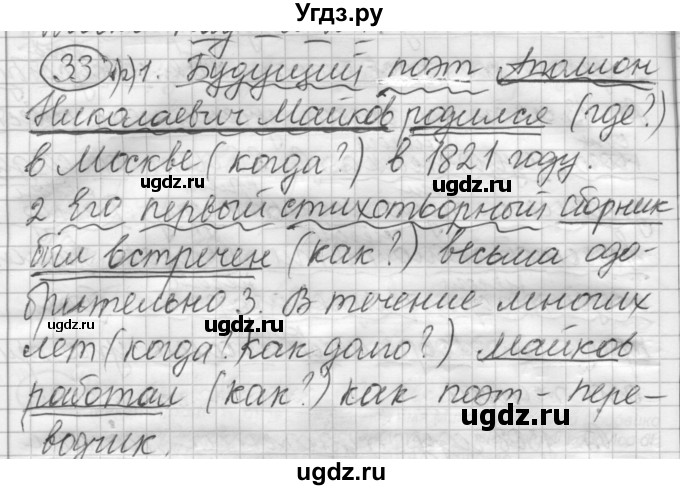 Угдз.ру
33 2) 1. Будущий поэт Аполлон
Николаевич Майков родился (где?)
в Москве (когда?) в 1821 году.
2 Его первый стихотворный сборник
был встречен (как?) весьма одо-
брительно 3. В течение многих
лет (когда? как долго?) Майков
работал (как?) как поэт - пере-
водчик.
gdz.ru
gdz.ru
gdz.ru
gdz.ru
gdz.ru
gdz.ru
gdz.ru
gdz.ru
gdz.ru
ugdz.ru